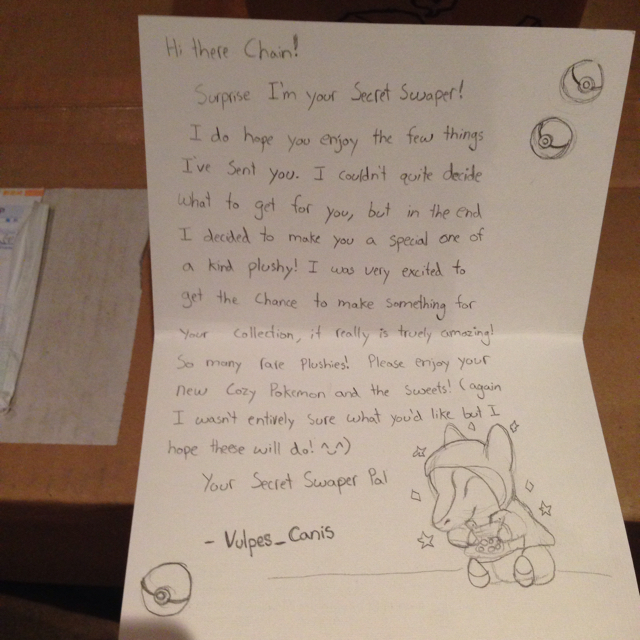 Hi there Chain!
Surprise I'm your Secret Swaper!
I do hope you enjoy the few things
I've sent you. I couldn't quite decide
what to get for you, but in the end
I decided to make you a special one of
a kind plushy! I was very excited to
get the chance to make something for
your collection, it really is truely amazing!
So many rare plushies! Please enjoy your
new Cozy Pokemon and the sweets! (again
I wasn't entirely sure what you'd like but I
hope theese will do! ^_^)
Your Secret Swaper Pal
- Vulpes_Canis